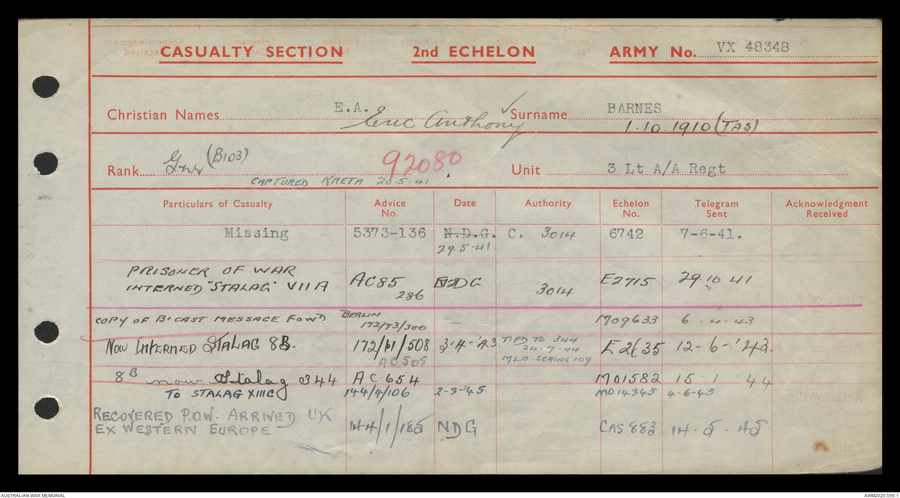 CASUALTY SECTION 2nd ECHELON ARMY No. VX 48348
Christian Names E.A. Eric Anthony Surname BARNES
1.10.1910 (TAS)
Rank Gnr (B103) 92080 Unit 3 Lt A/A Regt
CAPTURED KRETA 20.5.41
Particulars of Casualty Advice No. Date Authority Echelon No. Telegram Sent Acknowledgment Received
Missing 5373-136 N.D.G. C. 3014 6742 7-6-41.
29.5.41
PRISONER OF WAR
INTERNED "STALAG" VIIA AC85 286 NDG 3014 E2715 29.10.41
COPY OF B'CAST MESSAGE FOW'D BERLIN 172/73/300 — M09633 6.4.43
Now INTERNED STALAG 8B. 172/11/508 3-4-43 TIED TO 344 E2635 12-6-'43
AC505 24.7.44
8B now Stalag 344 AC 654 M01582 15.1.44
TO STALAG XIIIC 144/4/106 2-3-45 M014345 4-6-45
RECOVERED P.O.W. ARRIVED UK
EX WESTERN EUROPE 144/1/185 NDG CAS 883 14.5.45
AUSTRALIAN WAR MEMORIAL AWM2020.556.1